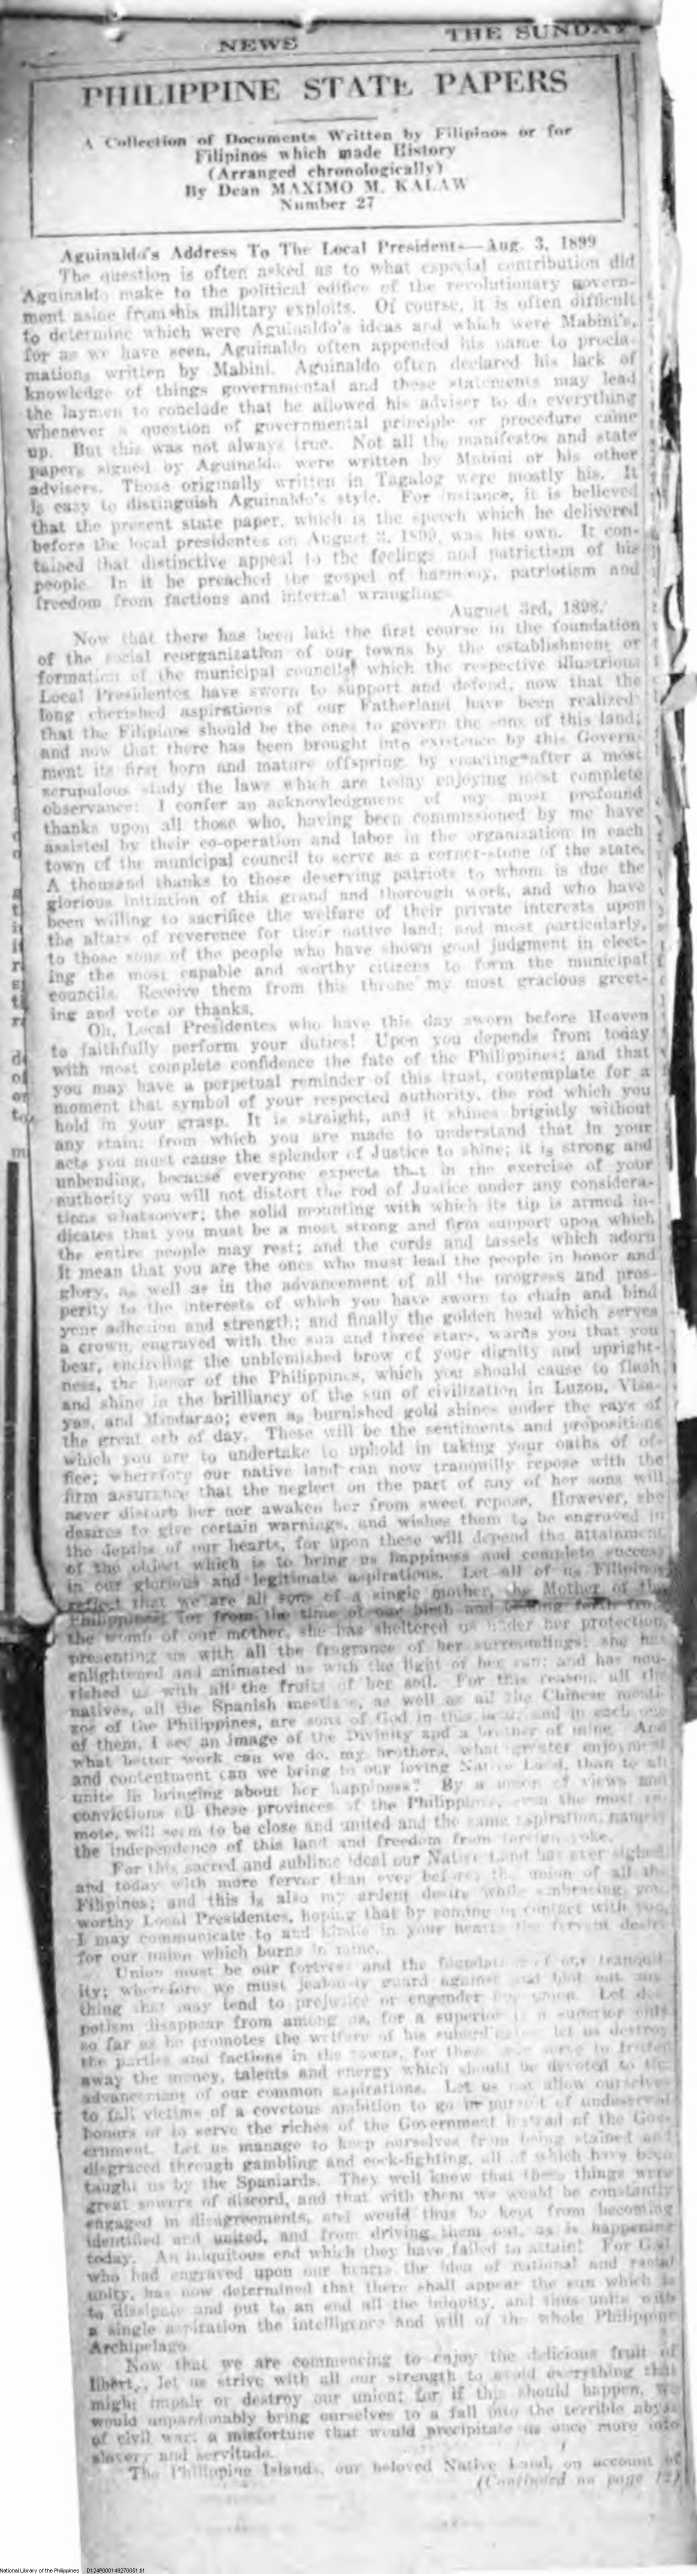 NEWS
THE SUNDAY
PHILIPPINE STATE PAPERS
A Collection of Documents Written by Filipinos or for
Filipinos which made History
(Arranged chronologically)
By Dean MAXIMO M. KALAW
Number 27
Aguinaldo's Address To The Local Presidents—Aug. 3, 1899
The question is often asked as to what especial contribution did
Aguinaldo make to the political edifice of the revolutionary govern-
ment aside from his military exploits. Of course, it is often difficult
to determine which were Aguinaldo's ideas and which were Mabini's,
for as we have seen, Aguinaldo often appended his name to procla-
mations written by Mabini. Aguinaldo often declared his lack of
knowledge of things governmental and these statements may lead
the laymen to conclude that he allowed his adviser to do everything
whenever a question of governmental principle or procedure came
up. But this was not always true. Not all the manifestos and state
papers signed by Aguinaldo were written by Mabini or his other
advisers. Those originally written in Tagalog were mostly his. It
is easy to distinguish Aguinaldo's style. For instance, it is believed
that the present state paper, which is the speech which he delivered
before the local presidentes on August 3, 1899, was his own. It con-
tained that distinctive appeal to the feelings and patrictism of his
people. In it he preached the gospel of harmony, patriotism and
freedom from factions and internal wrangling.
August 3rd, 1898.
Now that there has been laid the first course in the foundation
of the social reorganization of our towns by the establishment or
formation of the municipal councils which the respective illustrious
Local Presidentes have sworn to support and defend, now that the
long cherished aspirations of our Fatherland have been realized
that the Filipinos should be the ones to govern the sons of this land;
and now that there has been brought into existence by this Govern-
ment its first born and mature offspring by enacting after a most
scrupulous study the laws which are today enjoying most complete
observance: I confer an acknowledgment of my most profound
thanks upon all those who, having been commissioned by me have
assisted by their co-operation and labor in the organization in each
town of the municipal council to serve as a corner-stone of the state.
A thousand thanks to those deserving patriots to whom is due the
glorious initiation of this grand and thorough work, and who have
been willing to sacrifice the welfare of their private interests upon
the altars of reverence for their native land; and most particularly,
to those sons of the people who have shown good judgment in elect-
ing the most capable and worthy citizens to form the municipal
councils. Receive them from this throne my most gracious greet-
ing and vote or thanks.
Oh, Local Presidentes who have this day sworn before Heaven
to faithfully perform your duties! Upon you depends from today
with most complete confidence the fate of the Philippines; and that
you may have a perpetual reminder of this trust, contemplate for a
moment that symbol of your respected authority, the rod which you
hold in your grasp. It is straight, and it shines brightly without
any stain; from which you are made to understand that in your
acts you must cause the splendor of Justice to shine; it is strong and
unbending, because everyone expects that in the exercise of your
authority you will not distort the rod of Justice under any considera-
tions whatsoever; the solid mounting with which its tip is armed in-
dicates that you must be a most strong and firm support upon which
the entire people may rest; and the cords and tassels which adorn
it mean that you are the ones who must lead the people in honor and
glory, as well as in the advancement of all the progress and pros-
perity to the interests of which you have sworn to chain and bind
your adhesion and strength; and finally the golden head which serves
a crown, engraved with the sun and three stars, warns you that you
bear, encircling the unblemished brow of your dignity and upright-
ness, the honor of the Philippines, which you should cause to flash
and shine in the brilliancy of the sun of civilization in Luzon, Visa-
yas, and Mindanao; even as burnished gold shines under the rays of
the great orb of day. These will be the sentiments and propositions
which you are to undertake to uphold in taking your oaths of of-
fice; wherefore our native land can now tranquilly repose with the
firm assurance that the neglect on the part of any of her sons will
never disturb her nor awaken her from sweet repose. However, she
desires to give certain warnings, and wishes them to be engraved in
the depths of our hearts, for upon these will depend the attainment
of the object which is to bring us happiness and complete success
in our glorious and legitimate aspirations. Let all of us Filipinos
reflect that we are all sons of a single mother, the Mother of the
Philippines; for from the time of our birth and coming forth from
the womb of our mother, she has sheltered us under her protection,
presenting us with all the fragrance of her surroundings; she has
enlightened and animated us with the light of her sun; and has nou-
rished us with all the fruits of her soil. For this reason, all the
natives, all the Spanish mestizos, as well as all the Chinese mesti-
zos of the Philippines, are sons of God in this land, and in each one
of them, I see an image of the Divinity and a brother of mine. And
what better work can we do, my brothers, what greater enjoyment
and contentment can we bring to our loving Native Land, than to all
unite in bringing about her happiness? By a union of views and
convictions all these provinces of the Philippines, even the most re-
mote, will seem to be close and united and the same aspiration, namely
the independence of this land and freedom from foreign yoke.
For this sacred and sublime ideal our Native Land has ever sighed
and today with more fervor than ever before; the union of all the
Filipinos; and this is also my ardent desire while embracing you,
worthy Local Presidentes, hoping that by coming in contact with you,
I may communicate to and kindle in your hearts the fervent desire
for our union which burns in mine.
Union must be our fortress and the foundation of our tranquil-
ity; wherefore we must jealously guard against and blot out any-
thing that may tend to prejudice or engender our union. Let des-
potism disappear from among us, for a superior is a superior only
so far as he promotes the welfare of his subordinates; let us destroy
the parties and factions in the towns, for these serve to fritter
away the money, talents and energy which should be devoted to the
advancement of our common aspirations. Let us not allow ourselves
to fall victims of a covetous ambition to go in pursuit of undeserved
honors or to serve the riches of the Government instead of the Gov-
ernment. Let us manage to keep ourselves from being stained and
disgraced through gambling and cock-fighting, all of which have been
taught us by the Spaniards. They well knew that these things were
great sowers of discord, and that with them we would be constantly
engaged in disagreements, and would thus be kept from becoming
identified and united, and from driving them out, as is happening
today. An iniquitous end which they have failed to attain! For God
who had engraved upon our hearts the idea of national and racial
unity, has now determined that there shall appear the sun which is
to dissipate and put to an end all the iniquity, and thus unite with
a single aspiration the intelligence and will of the whole Philippine
Archipelago.
Now that we are commencing to enjoy the delicious fruit of
libert, let us strive with all our strength to avoid everything that
might impair or destroy our union; for if this should happen, we
would unpardonably bring ourselves to a fall into the terrible abyss
of civil war, a misfortune that would precipitate us once more into
slavery and servitude.
The Philippine Islands, our beloved Native Land, on account of
(Continued on page 12)
National Library of the Philippines